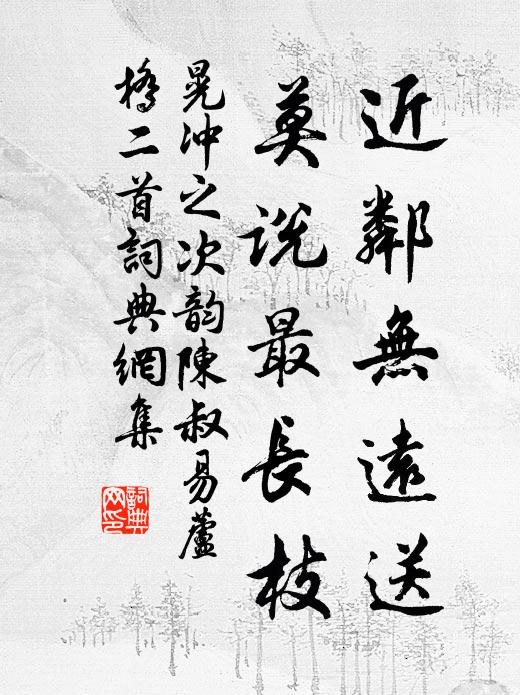 近鄰無遠送
莫説最長枝
晁沖之次韵陳叔易蘆
橋二首詞典網集
詞典
网印